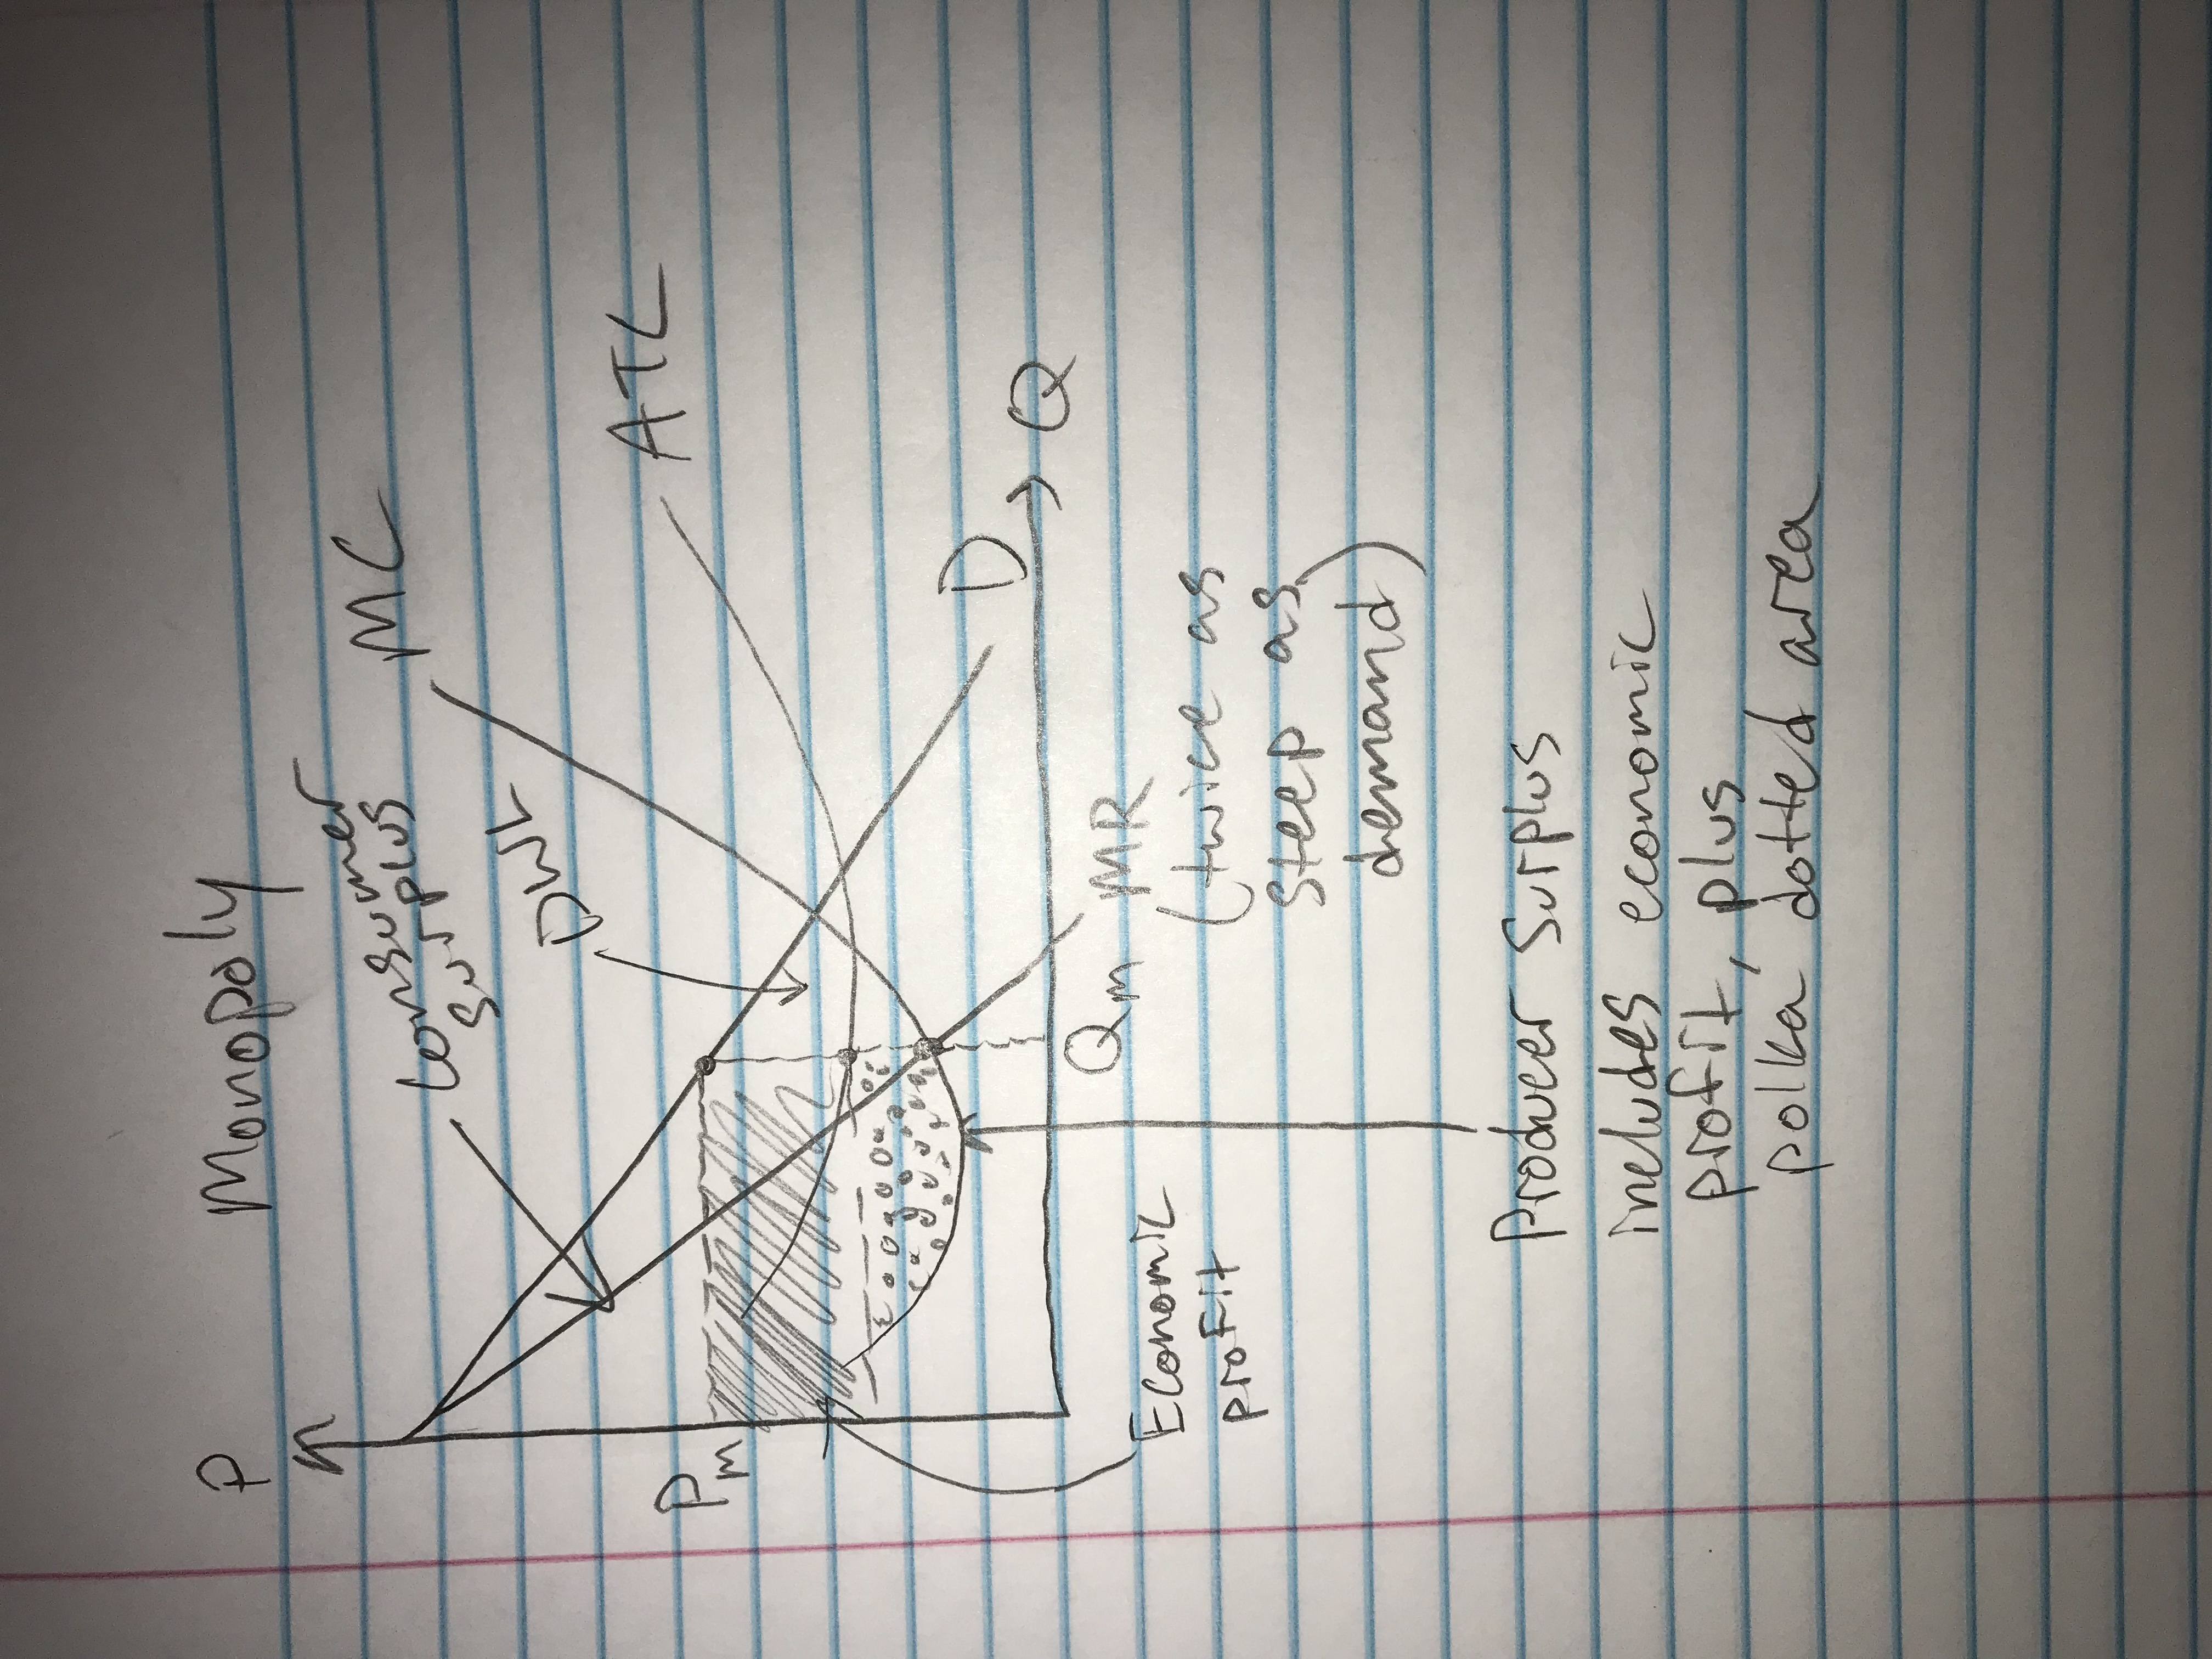 Monopoly
P
Consumer
Surplus
DWL
MC
ATC
Pm
D
Q
Qm
MR
(twice as
steep as
demand)
Economic
profit
Producer Surplus
includes economic
profit, plus
polka dotted area